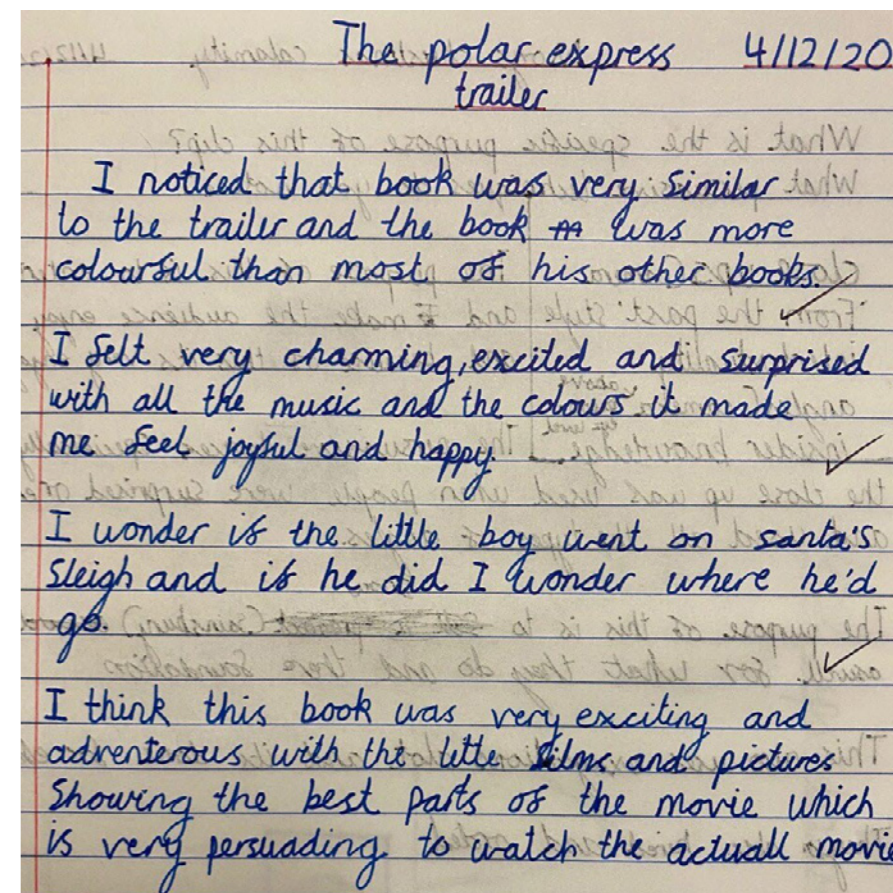 The polar express 4/12/20
trailer
I noticed that book was very similar
to the trailer and the book was more
colourful than most of his other books.
I felt very charming, excited and surprised
with all the music and the colours it made
me feel joyful and happy.
I wonder if the little boy went on santa's
sleigh and if he did I wonder where he'd
go.
I think this book was very exciting and
adventerous with the little films and pictures
showing the best parts of the movie which
is very persuading to watch the actuall movie